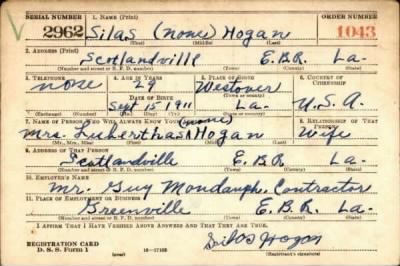 SERIAL NUMBER 1. NAME (Print) ORDER NUMBER
2962 Silas (none) Hogan 1043
(First) (Middle) (Last)
2. ADDRESS (Print)
Scotlandville E.B.R. La-
(Number and street or R. F. D. number) (Town) (County) (State)
3. TELEPHONE 4. AGE IN YEARS 5. PLACE OF BIRTH 6. COUNTRY OF CITIZENSHIP
none 29 Westover
DATE OF BIRTH (Town or county)
Sept 15 1911 La- U.S.A.
(Exchange) (Number) (Mo.) (Day) (Yr.) (State or country)
7. NAME OF PERSON WHO WILL ALWAYS KNOW YOUR ADDRESS 8. RELATIONSHIP OF THAT PERSON
(none)
Mrs. Hogan Wife
(Mr., Mrs., Miss) (First) (Middle) (Last)
9. ADDRESS OF THAT PERSON
Scotlandville E.B.R. La-
(Number and street or R. F. D. number) (Town) (County) (State)
10. EMPLOYER'S NAME
Mr. Guy Contractor
11. PLACE OF EMPLOYMENT OR BUSINESS
Greenville E.B.R. La-
(Number and street or R. F. D. number) (Town) (County) (State)
I AFFIRM THAT I HAVE VERIFIED ABOVE ANSWERS AND THAT THEY ARE TRUE.
Silas Hogan
REGISTRATION CARD
D. S. S. Form 1 (over) 16-17105 (Registrant's signature)